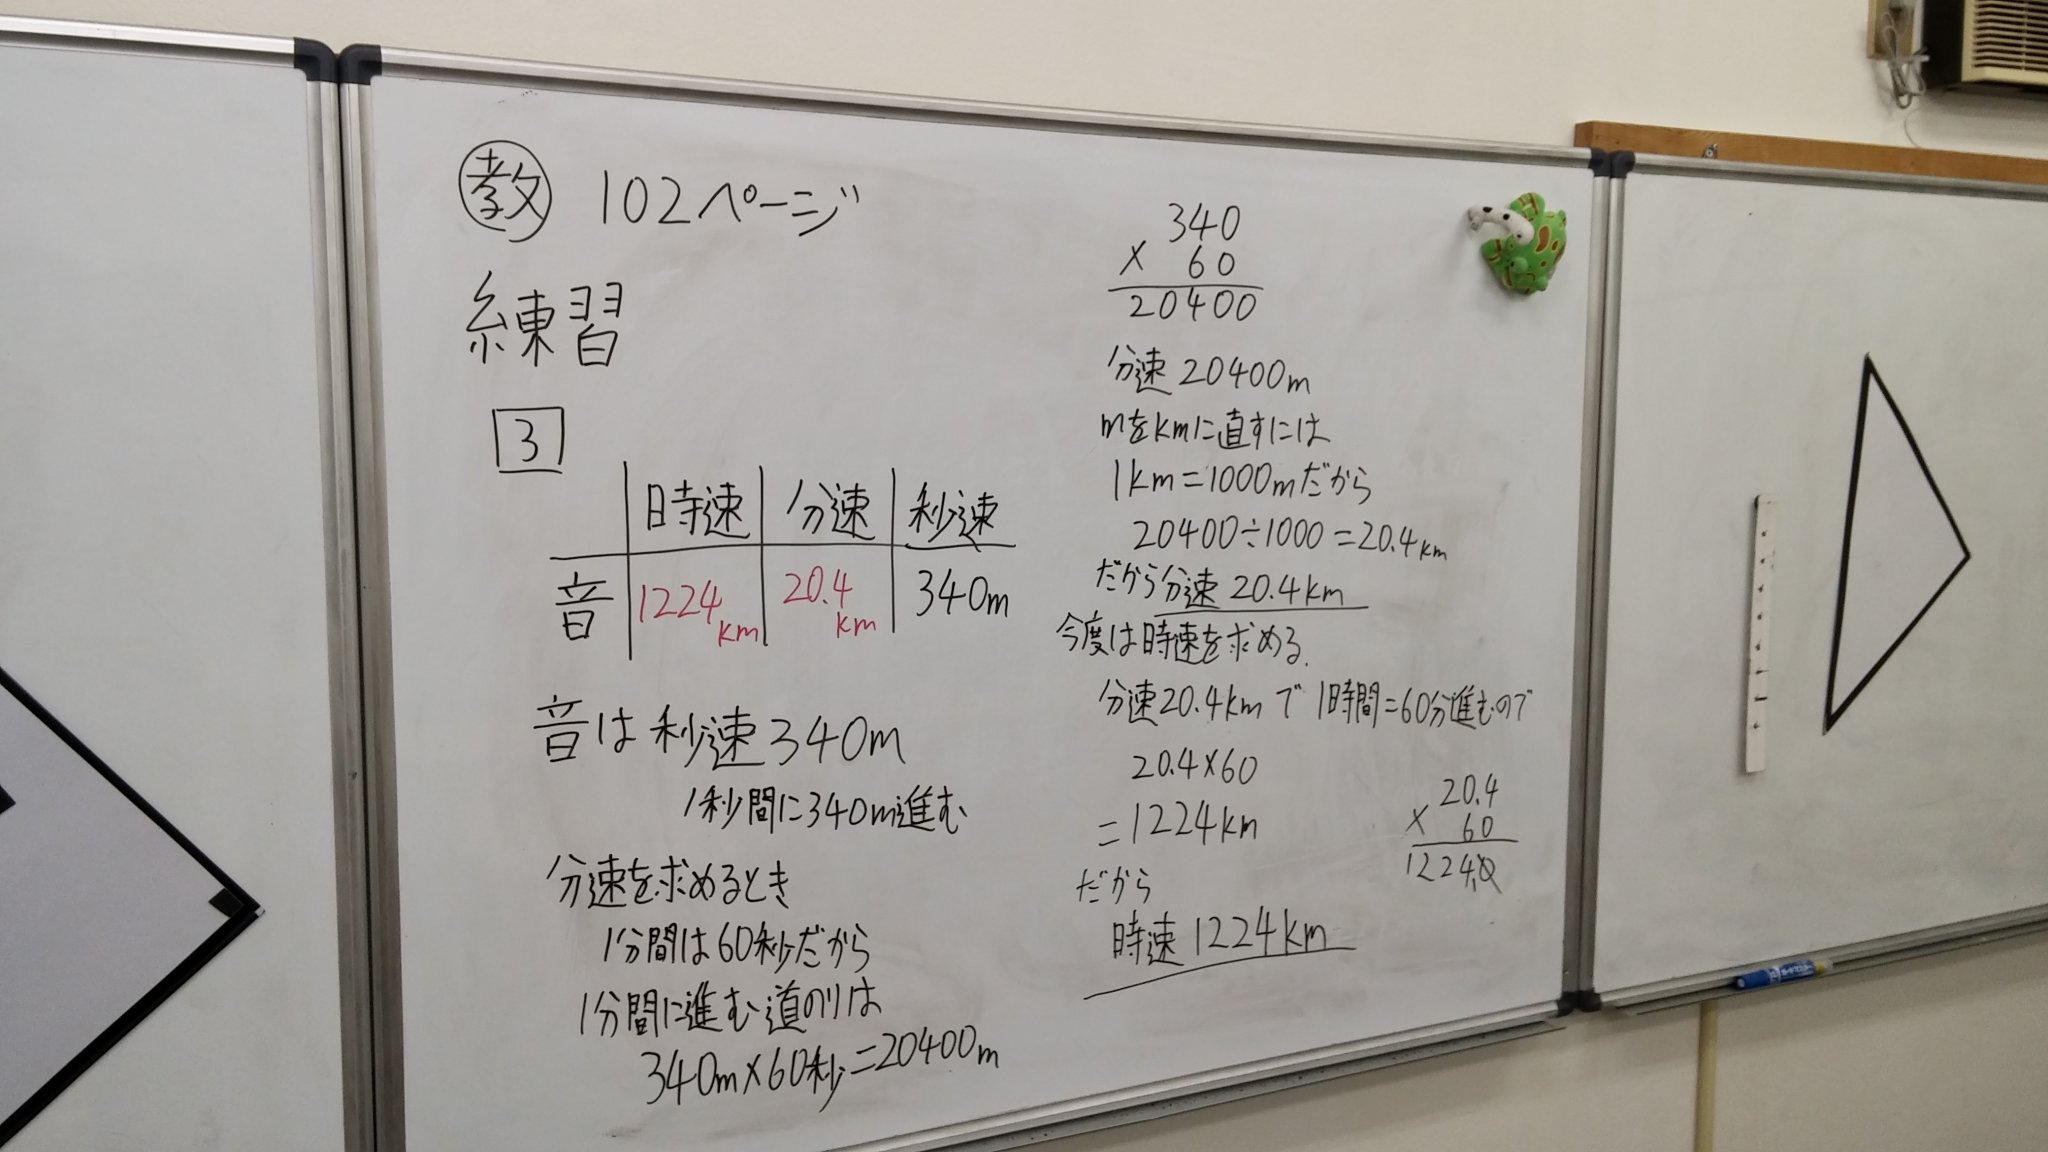 教 102ページ
練習
3
時速 分速 秒速
音 1224km 20.4km 340m
音は秒速340m
1秒間に340m進む
分速を求めるとき
1分間は60秒だから
1分間に進む道のりは
340m×60秒=20400m
340
× 60
20400
分速20400m
mをkmに直すには
1km=1000mだから
20400÷1000=20.4km
だから分速 20.4km
今度は時速を求める.
分速20.4kmで 1時間=60分進むので
20.4×60
=1224km
20.4
× 60
1224.0
だから
時速1224km